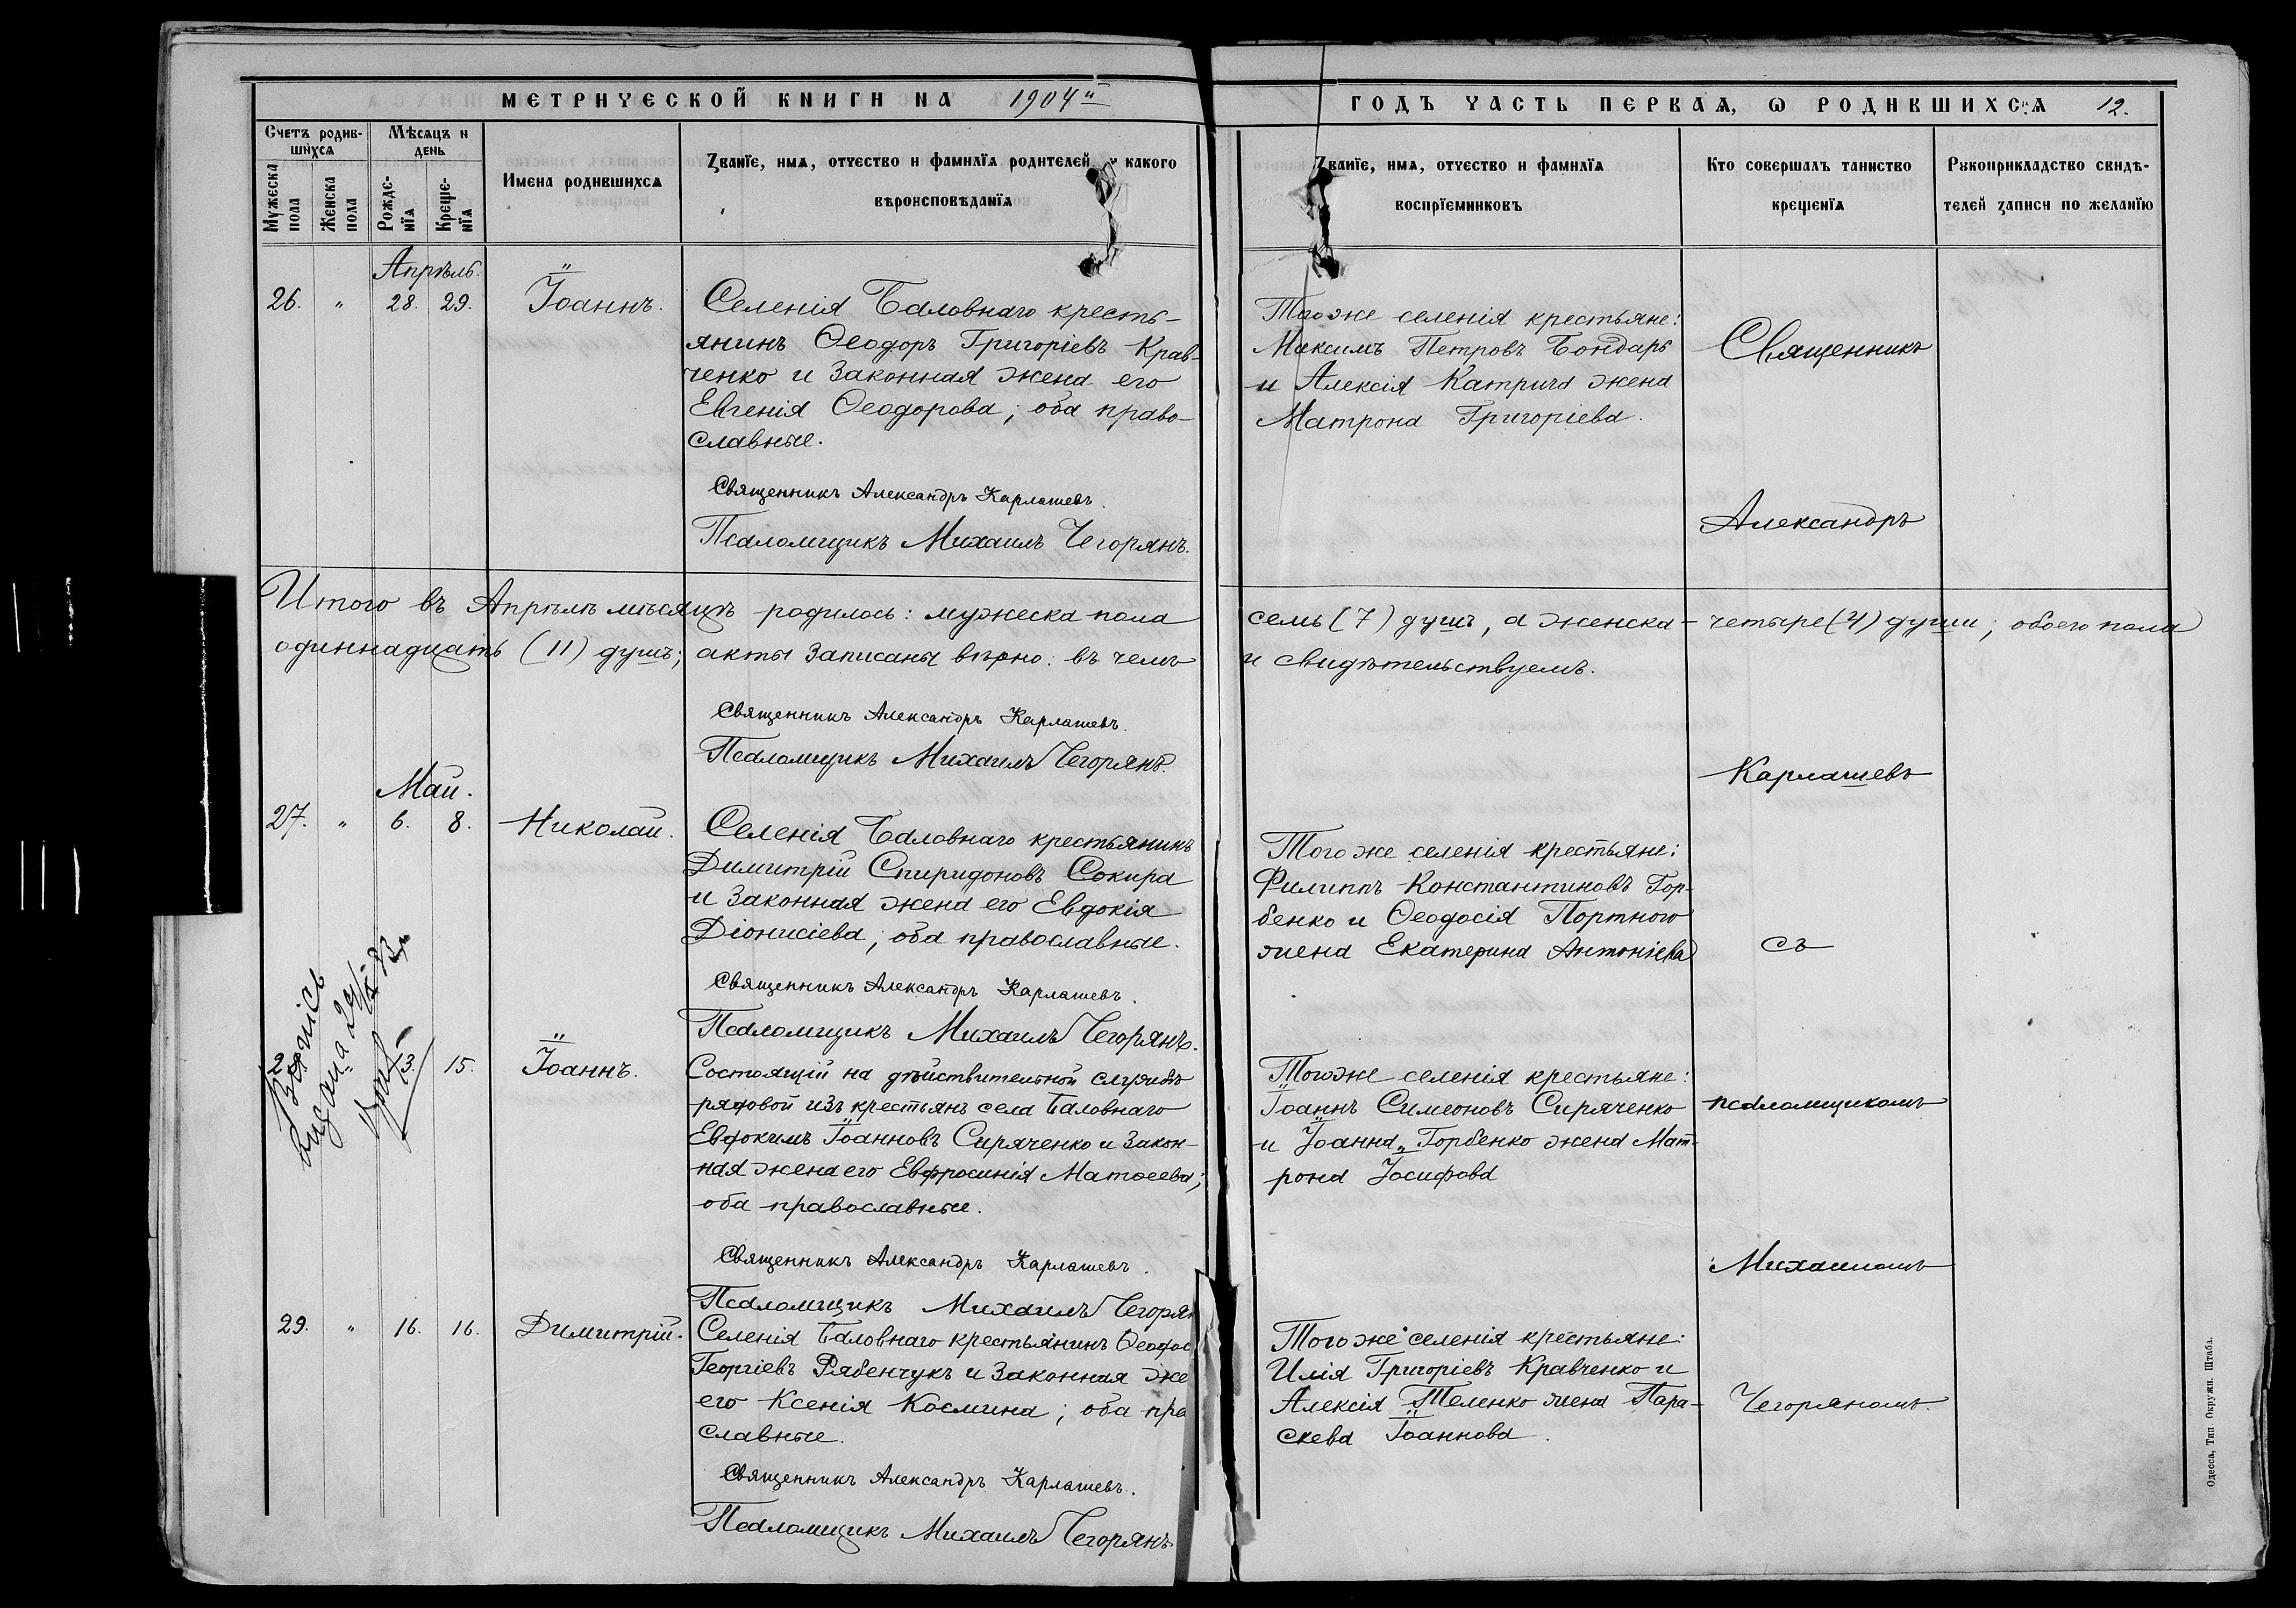 МЕТРИЧЕСКОЙ КНИГИ НА 1904й
ГОДЪ ЧАСТЬ ПЕРВАЯ, Ѡ РОДИВШИХСЯ 12.
Счетъ родив-
шихся
Мѣсяцъ и
день
Мужеска
пола
Женска
пола
Рожде-
нїя
Креще-
нїя
Имена родившихся
Званїе, имя, отчество и фамилїя родителей и какого
вѣроисповѣданїя
Званїе, имя, отчество и фамилїя
воспрїемниковъ
Кто совершалъ таинство
крещенїя
Рꙋкоприкладство свидѣ-
телей записи по желанїю
Апрѣль.
26. " 28. 29. Іоаннъ.
Селенія Баловнаго кресть-
янинъ Ѳеодоръ Григоріевъ Крав-
ченко и законная жена его
Евгенія Ѳеодорова; оба право-
славные.
Священникъ Александръ Карлашевъ.
Псаломщикъ Михаилъ Чегорянъ.
Тогоже селенія крестьяне:
Максимъ Петровъ Бондарь
и Алексія Катрича жена
Матрона Григоріева.
Священникъ
Александръ
Итого въ Апрѣлѣ мѣсяцѣ родилось: мужеска пола семь (7) душъ, а женска – четыре (4) души; обоего пола
одиннадцать (11) душъ; акты записаны вѣрно: въ чемъ и свидѣтельствуемъ.
Священникъ Александръ Карлашевъ.
Псаломщикъ Михаилъ Чегорянъ.
Карлашевъ
Май.
27. " 6. 8. Николай.
Селенія Баловнаго крестьянинъ
Димитрій Спиридоновъ Сокира
и законная жена его Евдокія
Діонисіева; оба православные.
Священникъ Александръ Карлашевъ.
Псаломщикъ Михаилъ Чегорянъ.
Тогоже селенія крестьяне:
Филиппъ Константиновъ Гор-
бенко и Ѳеодосія Портного
жена Екатерина Антоніева
съ
13. 15. Іоаннъ.
Состоящій на дѣйствительной службѣ
рядовой изъ крестьянъ села Баловнаго
Евфокимъ Іоанновъ Сиряченко и закон-
ная жена его Евфросинія Матѳеева;
оба православные.
Священникъ Александръ Карлашевъ.
Псаломщикъ Михаилъ Чегорян
Тогоже селенія крестьяне:
Іоаннъ Симеоновъ Сиряченко
и Іоанна Горбенко жена Мат-
рона Іосифова
псаломщикомъ
Михаиломъ
29. " 16. 16. Димитрій.
Селенія Баловнаго крестьянинъ Ѳеодос
Георгіевъ Рябенчукъ и законная же
его Ксенія Космина; оба пра
славные.
Священникъ Александръ Карлашевъ.
Псаломщикъ Михаилъ Чегорянъ
Тогоже селенія крестьяне:
Илія Григоріевъ Кравченко и
Алексія Теленко жена Пара-
скева Іоаннова.
Чегоряномъ.
Одесса, Тип. Окружн. Штаба.